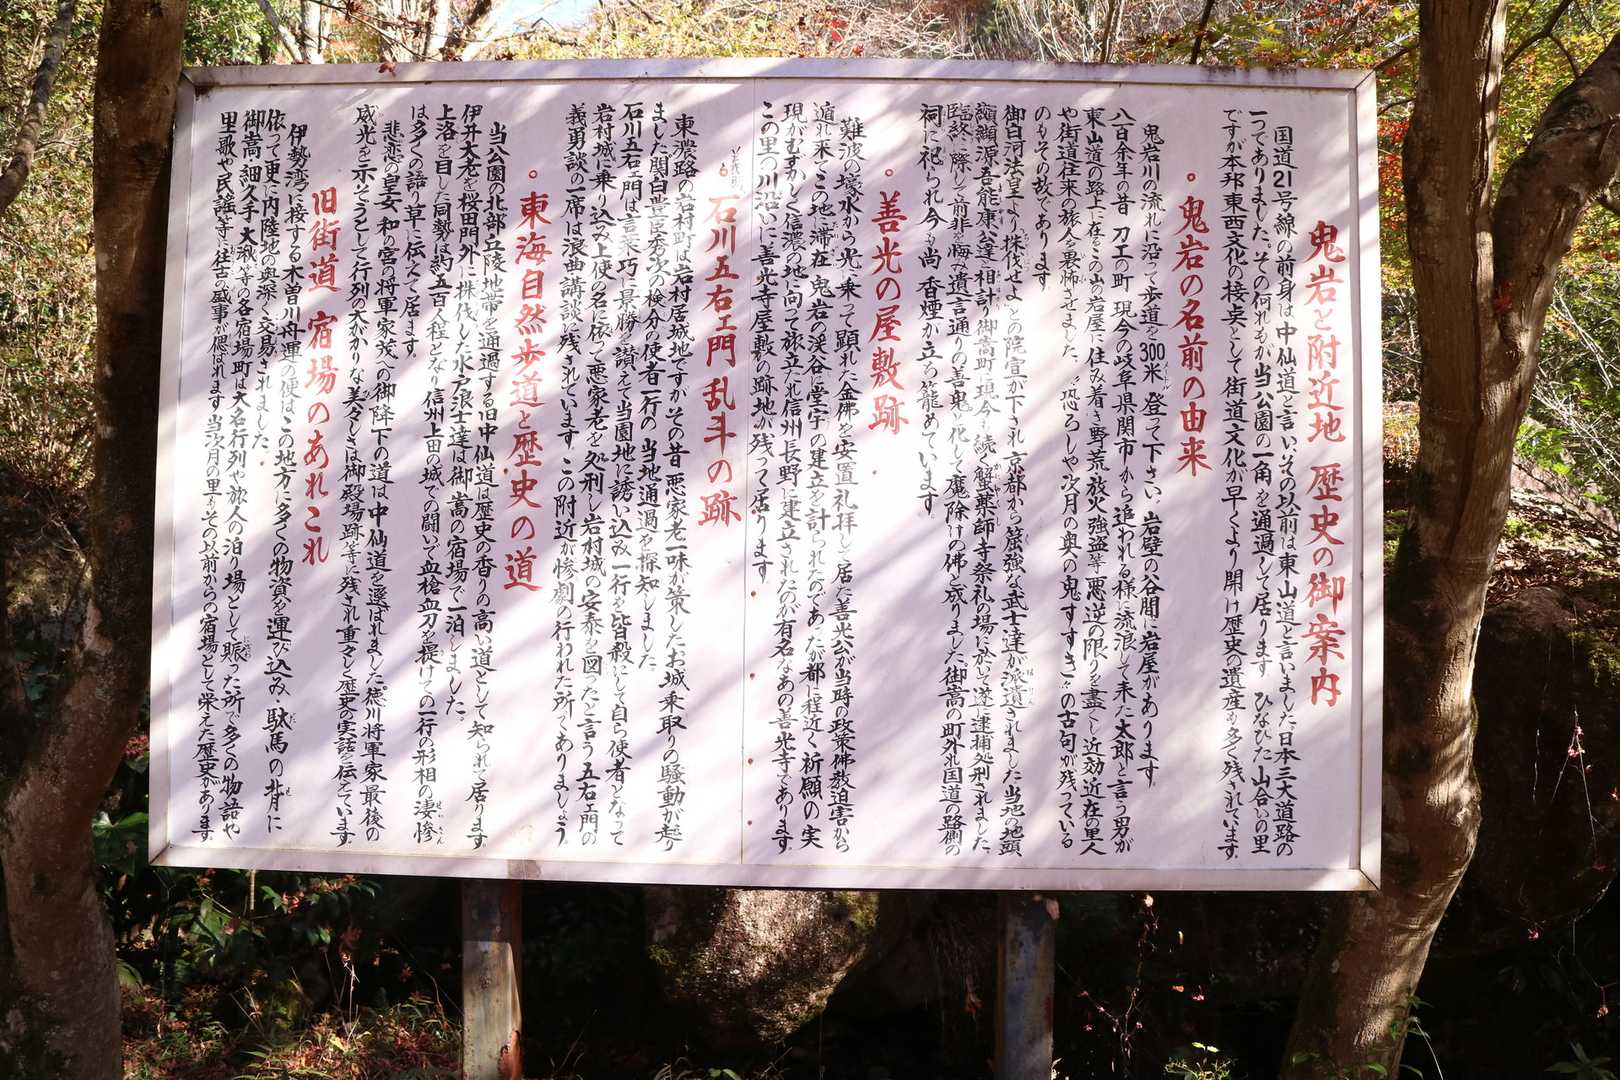 鬼岩と附近地 歴史の御案内
国道21号線の前身は中仙道と言いその以前は東山道と言いました日本三大道路の
一つでありました。その何れもが当公園の一角を通過して居ります ひなびた山合いの里
ですが本邦東西文化の接点として街道文化が早くより開け歴史の遺産も多く残されています。
鬼岩の名前の由来
鬼岩川の流れに沿って歩道を300米登って下さい。岩壁の谷間に岩屋があります。
八百余年の昔 刀工の町 現今の岐阜県関市から追われる様に流浪して来た太郎と言う男が
東山道の路上に在るこの山の岩屋に住み着き野荒放火強盗等悪逆の限りを盡くし近効近在の里人
や街道往来の旅人を畏怖させました、恐ろしや次月の奥の鬼すすき〃の古句が残っている
のもその故であります。
御白河法皇より誅伐せよとの院宣が下され京都から强強な武士達が派遣されました当地の地頭
纐纈源吾能康公達と相計り御嵩町に現今も続く蟹薬師寺祭礼の場に於て遂に逮捕処刑されました、
臨終に際して前非を悔い遺言通りの善鬼と化して魔除けの佛と成りました御嵩の町外れ国道の路側の
祠に祀られ今も尚 香煙が立ち籠めています。
善光の屋敷跡
難波の壕水から光に乗って顕れた金佛を安置礼拝して居た善光公が当時の政策佛教迫害から
逭れ来てこの地に滞在 鬼岩の渓谷に堂宇の建立を計られたのであったが都に程近く祈願の実
現がむずかしく信濃の地に向って旅立たれ信州長野に建立されたのが有名なあの善光寺であります。
この里の川沿いに善光寺屋敷の跡地が残って居ります。
石川五右ェ門乱斗の跡
東濃路の岩村町は岩村居城地ですがその昔悪家老一味が策したお城乗取りの騒動が起り
ました関白豊臣秀次の検分の使者一行の 当地通過を探知しました。
石川五右ェ門は言葉巧に景勝を讃えて当園地に誘い込み一行を皆殺にして自ら使者となって
岩村城に乗り込み上使の名に依って悪家老を処刑し岩村城の安泰を図ったと言う五右ェ門の
義勇談の一席は浪曲講談に残されています。この附近が惨劇の行われた所でありましょう。
東海自然歩道と歴史の道
当公園の北部丘陵地帯を通過する旧中仙道は歴史の香りの高い道として知られて居ります。
伊井大老を桜田門外に誅伐した水戸浪士達は御嵩の宿場で一泊しました。
上洛を目した同勢は約五百人程となり信州上田の城での闘いで血槍血刀を提げての一行の形相の凄惨
は多くの語り草に伝えて居ます。
悲恋の皇女 和の宮の将軍家茂への御降下の道は中仙道を選ばれました徳川将軍家最後の
威光を示そうとして行列の大がかりな美々しさは御殿場跡等に残され重々しく歴史の実話を伝えています。
旧街道 宿場のあれこれ
伊勢湾に接する木曽川舟運の便はこの地方に多くの物資を運び込み、駄馬の背に
依って更に内陸地の奥深く交易されました。
御嵩 細久手 大湫等の各宿場町は大名行列や旅人の泊り場として賑った所で多くの物語や
里歌や民謡等に往古の盛事が偲ばれます 当次月の里もその以前からの宿場として栄えた歴史があります。